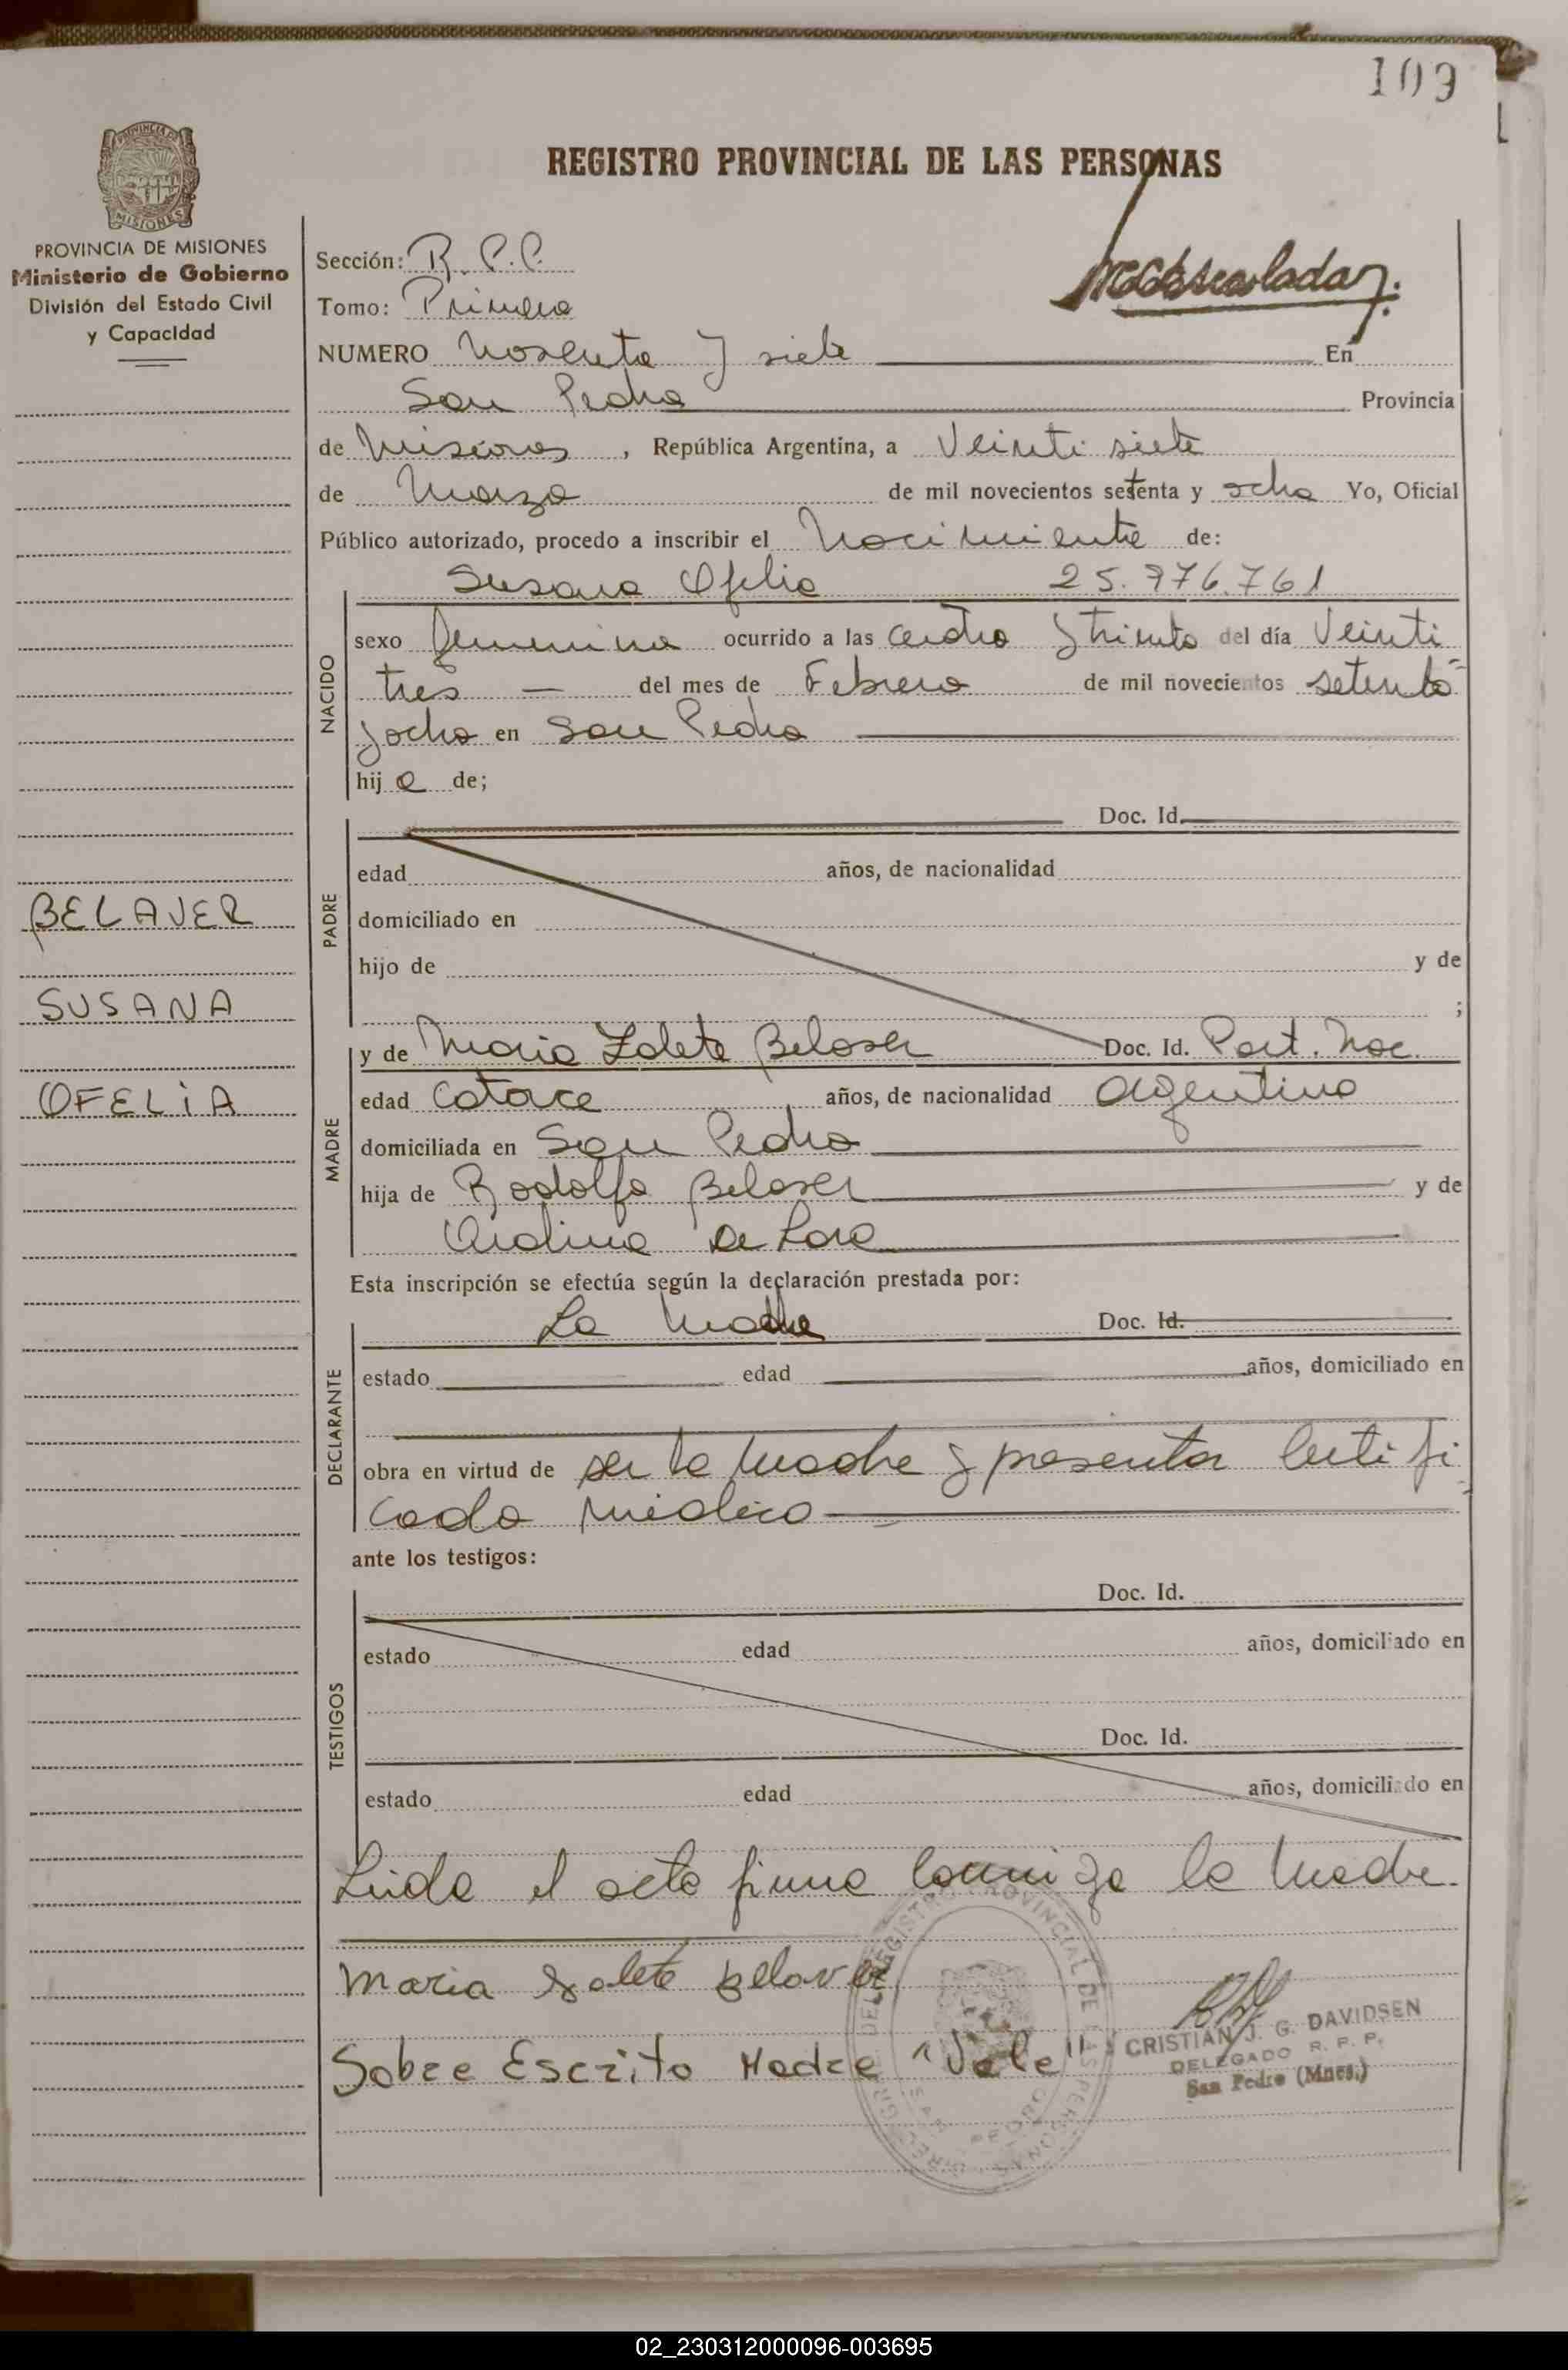 109
REGISTRO PROVINCIAL DE LAS PERSONAS
PROVINCIA DE MISIONES
MISIONES
PROVINCIA DE MISIONES
Ministerio de Gobierno
División del Estado Civil
y Capacidad
Sección: R.P.P.
Tomo: Primero
NUMERO Noventa y siete En
San Pedro Provincia
de Misiones, República Argentina, a Veinti siete
de Marzo de mil novecientos setenta y ocho Yo, Oficial
Público autorizado, procedo a inscribir el Nacimiento de:
Susana Ofelia 25.976.761
NACIDO
sexo femenino ocurrido a las cuatro y treinta del día Veinti
tres — del mes de Febrero de mil novecientos setenta
y ocho en San Pedro
hija de;
PADRE
Doc. Id.
edad años, de nacionalidad
domiciliado en
hijo de y de
;
BELAVER
SUSANA
OFELIA
MADRE
y de Maria Zalete Belaver Doc. Id. Part. Nac.
edad catorce años, de nacionalidad argentina
domiciliada en San Pedro
hija de Rodolfo Belaver y de
De Lara
Esta inscripción se efectúa según la declaración prestada por:
DECLARANTE
La Madre Doc. Id.
estado edad años, domiciliado en
obra en virtud de ser la madre y presentar Certifi
cado médico
ante los testigos:
TESTIGOS
Doc. Id.
estado edad años, domiciliado en
Doc. Id.
estado edad años, domiciliado en
Leida el acta firma conmigo la Madre.
Maria Salete Belaver
Sobre Escrito Madre "Vale"
CRISTIAN J. G. DAVIDSEN
DELEGADO R. P. P.
San Pedro (Mnes.)
REGISTRO PROVINCIAL DE LAS PERSONAS
SAN PEDRO
02_230312000096-003695